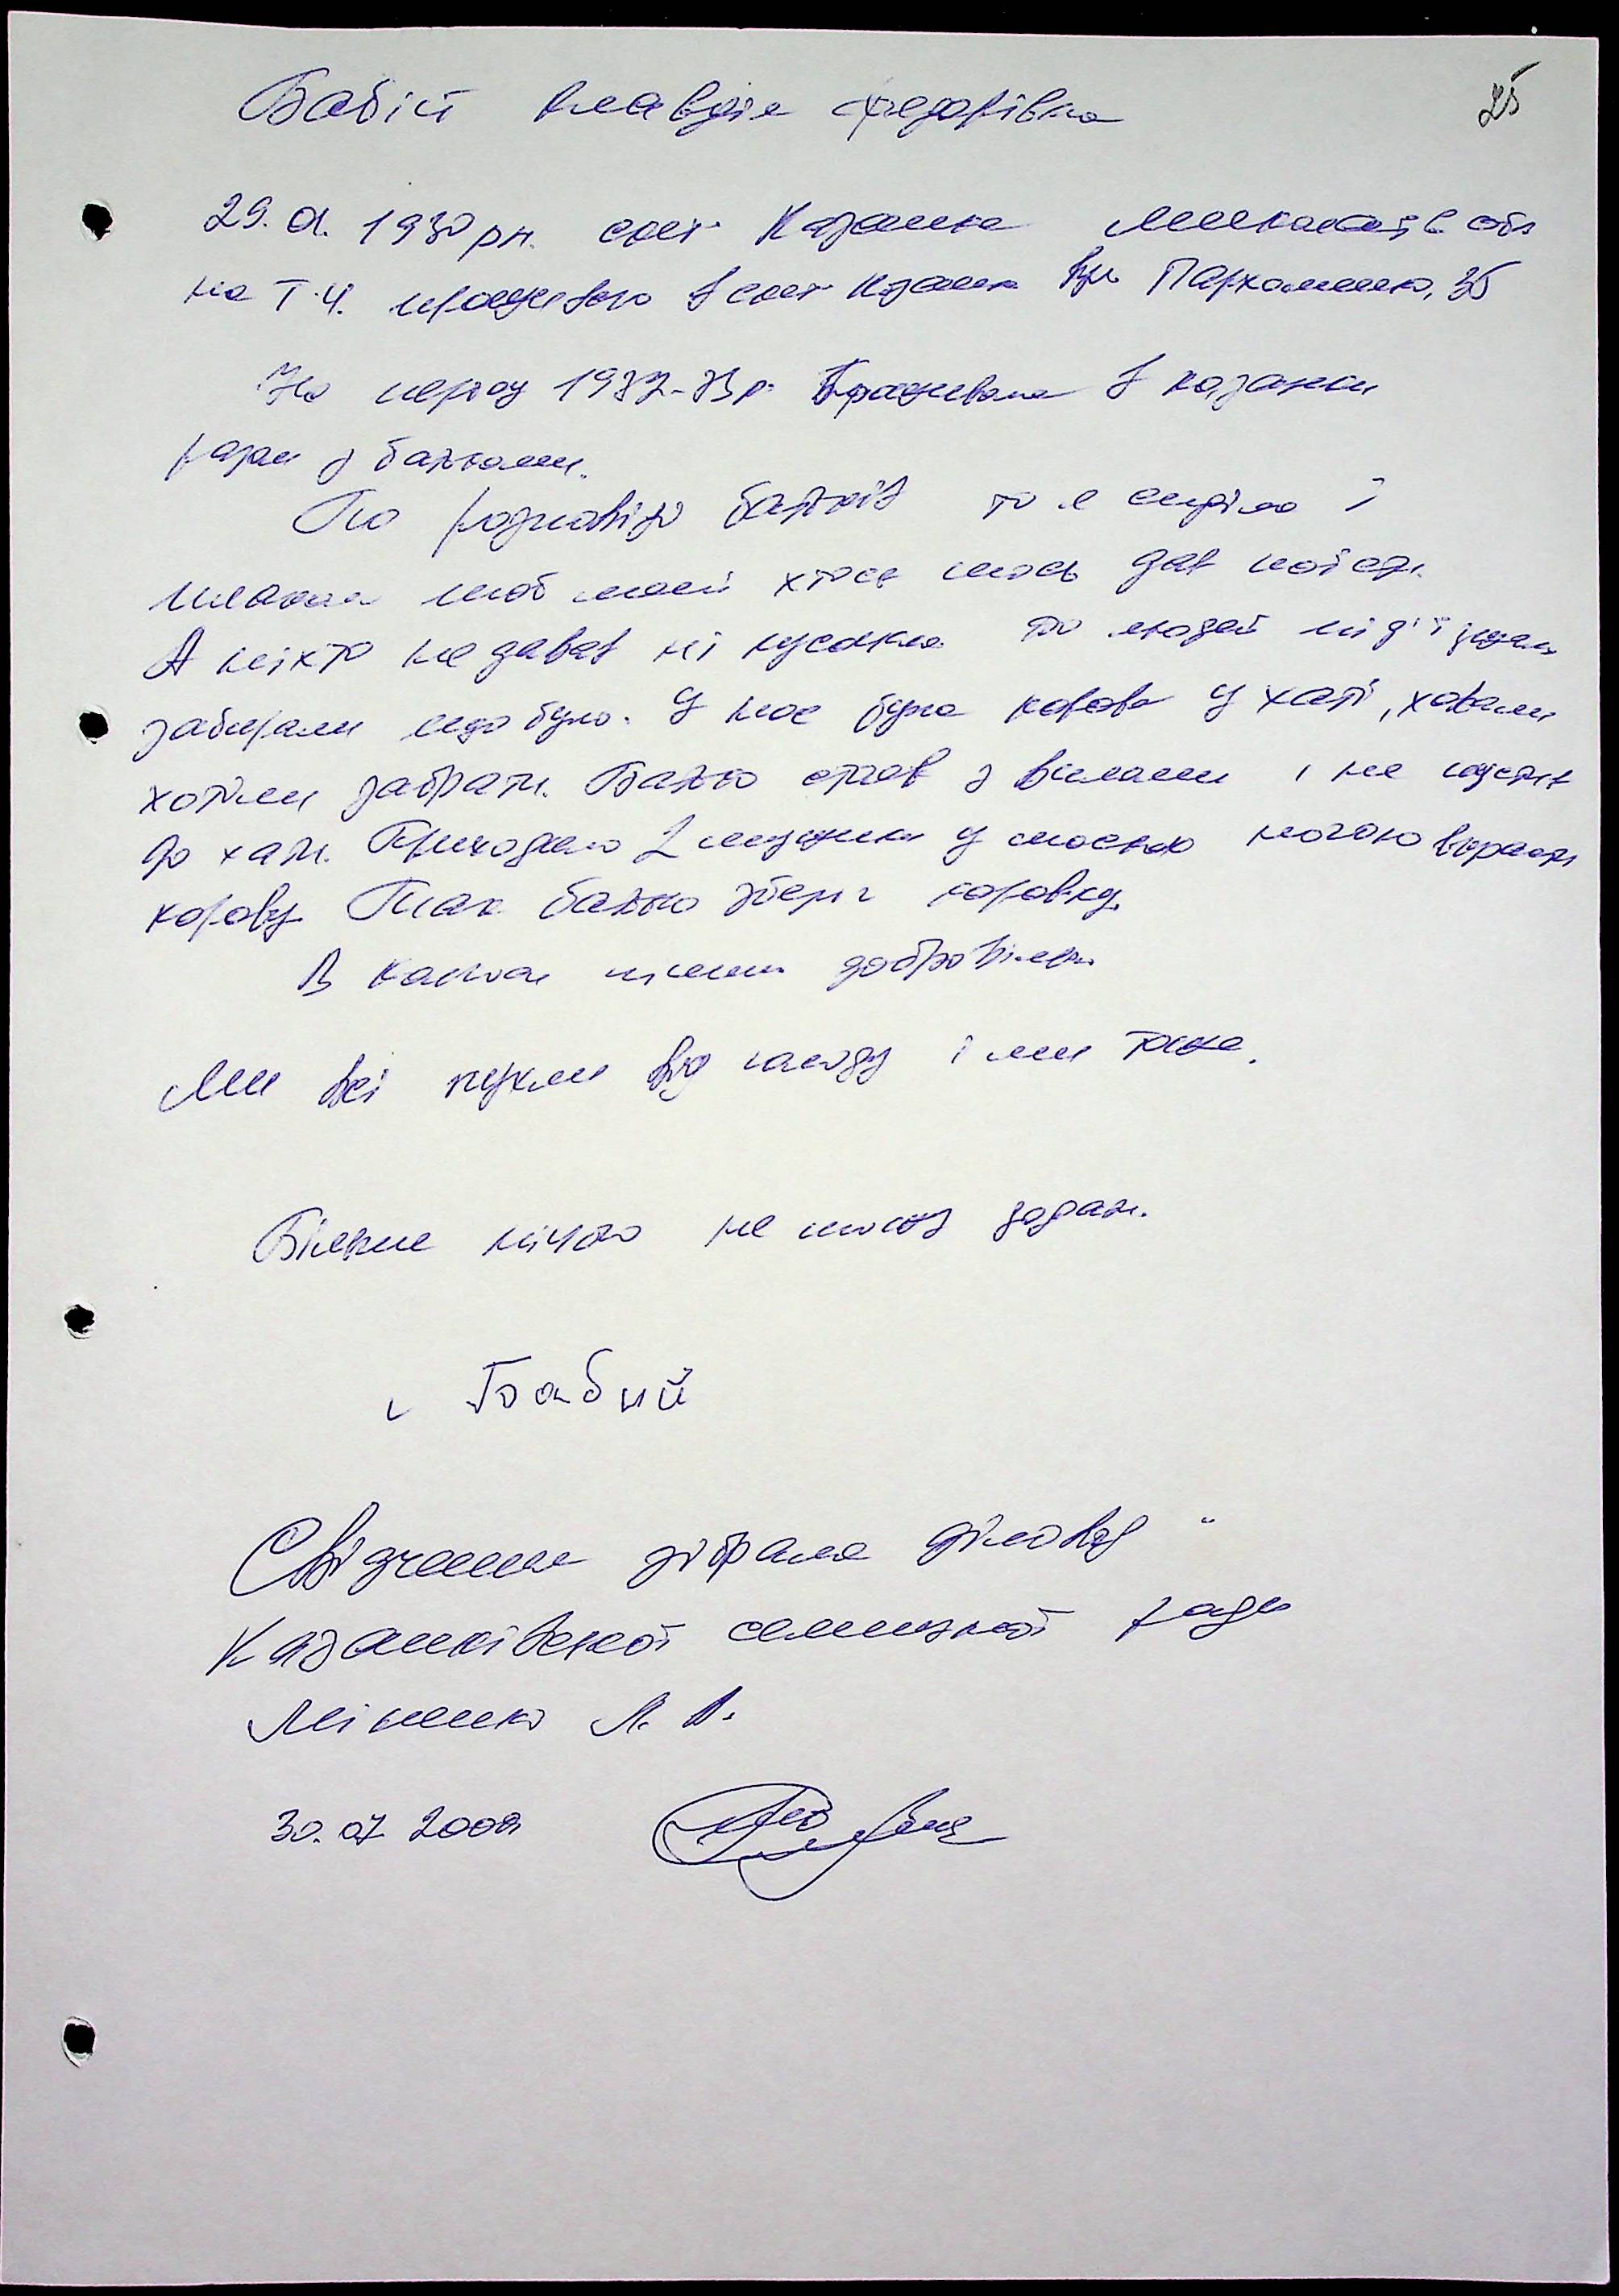 Бабій Клавдія Федорівна
25
29. 01. 1930 р.н. смт Казанка Миколаївс обл
на т.ч. проживаю в смт Казанка вул Пархоменко, 35
На період 1932-33 р. Проживала в Казанки
разом з батьками.
По розповідю батьків то я сиділа і
плакала щоб мені хтось щось дав поїсти.
А ніхто не давав ні кусочка то людей під'їзжали
забирали що було. У нас була корова у хаті, ховали
хотіли забрати. Батько стояв з вилами і не пустив
до хати. Приходило 2 мущини у ночью вкрасти
корову. Так батько зберіг коровку.
В колхоз пішли добровільно
Ми всі пухли від голоду і ми тоже.
Більше нічого не можу додати.
Бабий
Свідчення зібрала діловод
Казанківської селищної ради
Міненко Л. В.
30. 07 2008